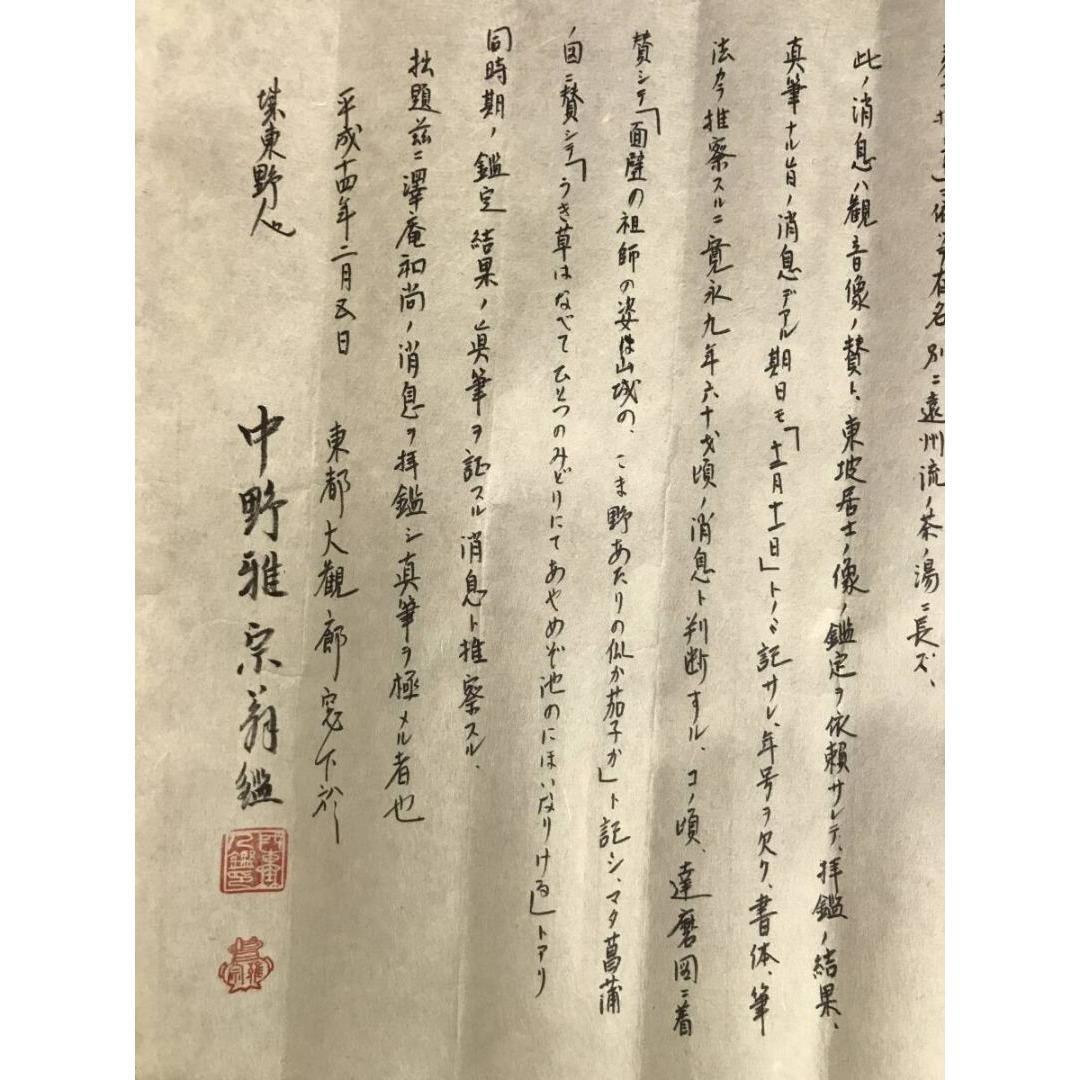 有名別ニ遠州流ノ茶ノ湯ニ長ズ、
此ノ消息ハ観音像ノ賛ト、東坡居士ノ像ノ鑑定ヲ依頼サレテ、拝鑑ノ結果、
真筆ナル旨ノ消息デアル期日モ「十二月十一日」トノミ記サレ、年号ヲ欠ク、書体、筆
法カラ推察スルニ寛永九年六十才頃ノ消息ト判断スル、コノ頃、達磨図ニ着
賛シテ「面壁の祖師の姿は山城の、こま野あたりの瓜か茄子か」ト記シ、マタ菖蒲
ノ図ニ賛シテ「うき草はなべてひとつのみどりにてあやめぞ池のにほいなりける」トアリ
同時期ノ鑑定結果ノ真筆ヲ記スル消息ト推察スル、
拙題茲ニ澤庵和尚ノ消息ヲ拝鑑シ真筆ヲ極メル者也
平成十四年二月五日 東都大觀廊窓下於
東野人
中野雅宗翁鑑
雅宗